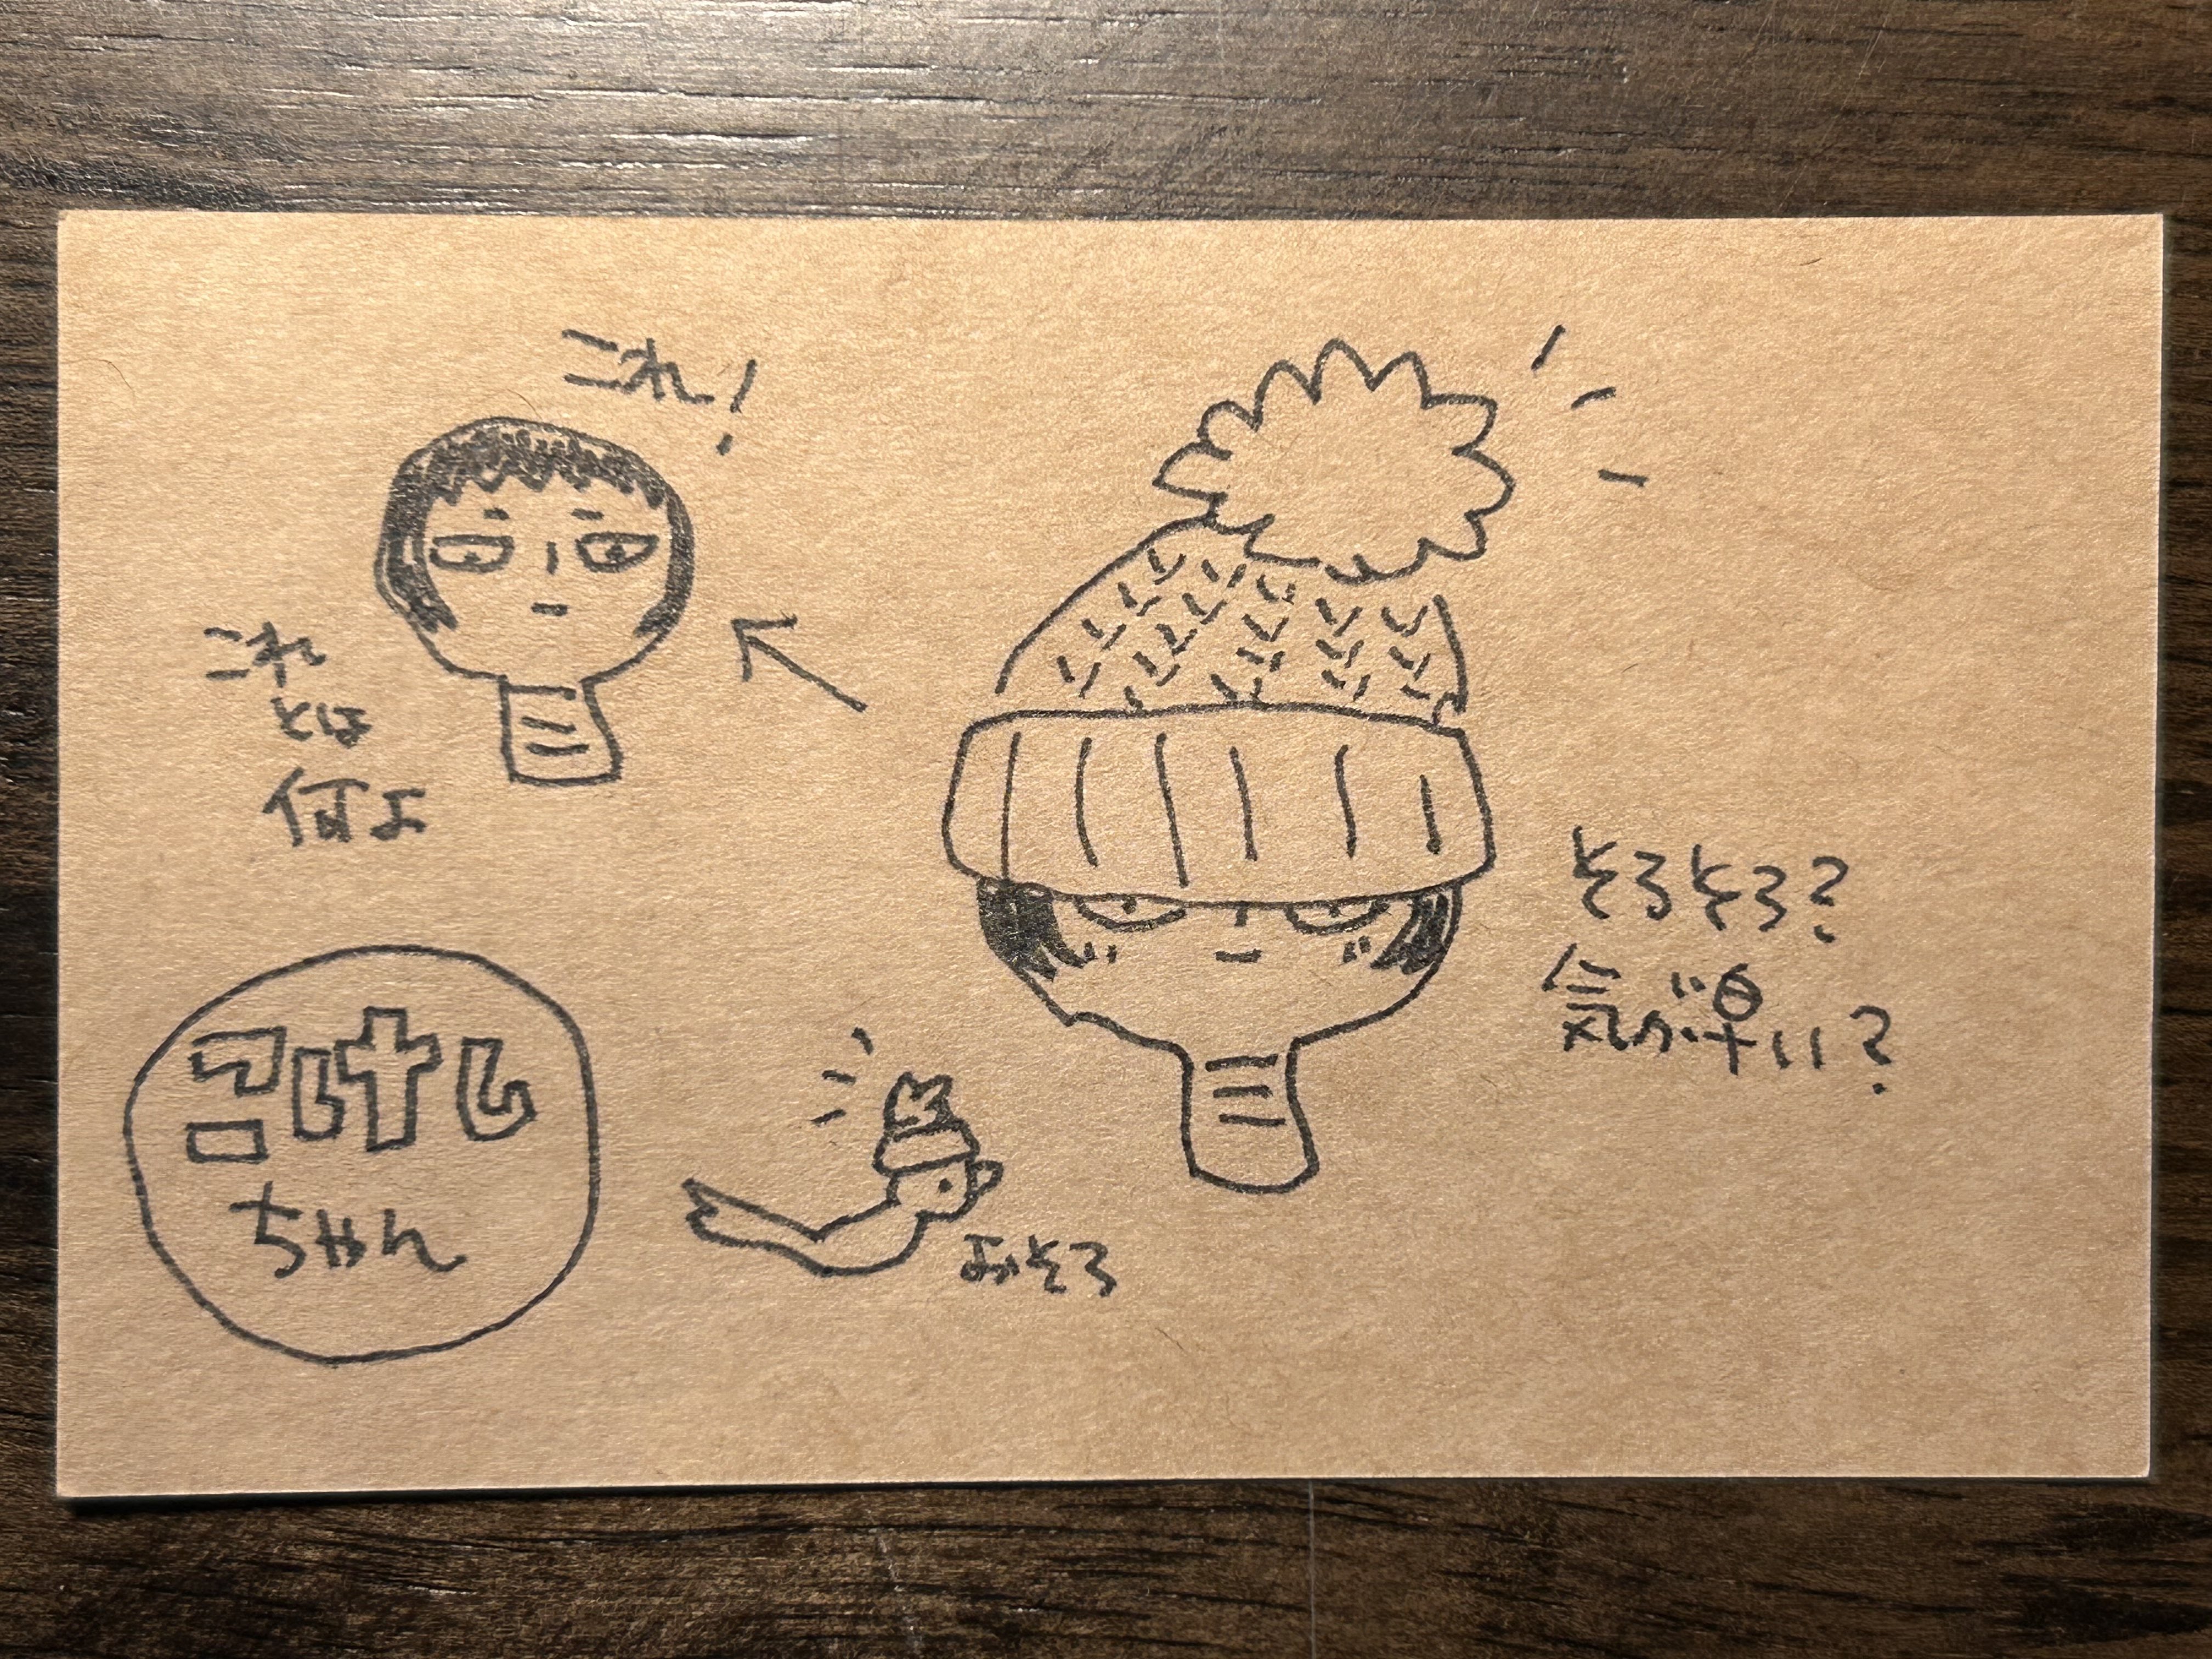 これ!
これ
とは
何よ
そろそろ?
気が早い?
こけし
ちゃん
おそろ